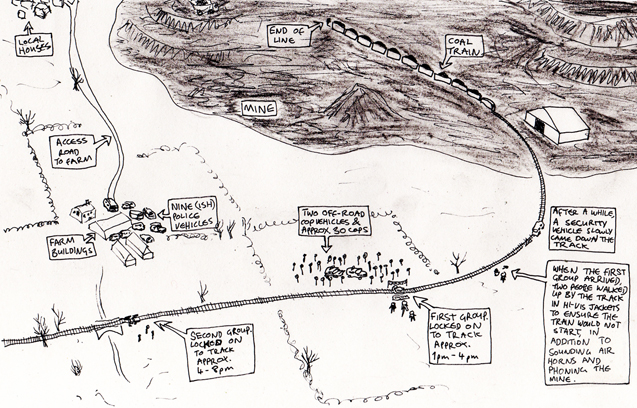 LOCAL
HOUSES
END OF
LINE
COAL
TRAIN
MINE
ACCESS
ROAD
TO FARM
NINE (ISH)
POLICE
VEHICLES
FARM
BUILDINGS
TWO OFF-ROAD
COP VEHICLES &
APPROX 30 COPS
AFTER A WHILE
A SECURITY
VEHICLE SLOWLY
CAME DOWN THE
TRACK
WHEN THE FIRST
GROUP ARRIVED,
TWO PEOPLE WALKED
UP BY THE TRACK
IN HI-VIS JACKETS
TO ENSURE THE
TRAIN WOULD NOT
START, IN
ADDITION TO
SOUNDING AIR
HORNS AND
PHONING THE
MINE.
FIRST GROUP
LOCKED ON
TO TRACK
APPROX.
1pm-4pm
SECOND GROUP
LOCKED ON
TO TRACK
APPROX.
4-8pm